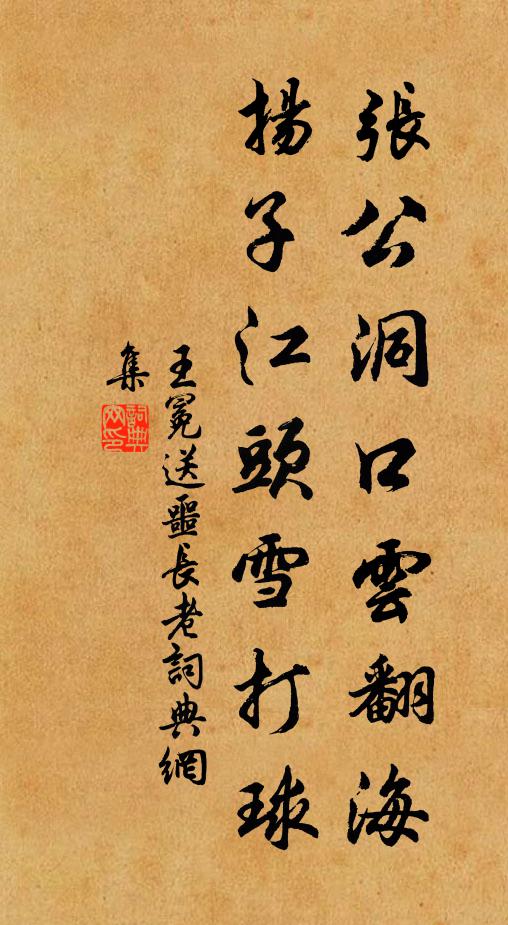 張公洞口雲翻海
揚子江頭雪打球
王冕送噩長老詞典網
集
詞典網印